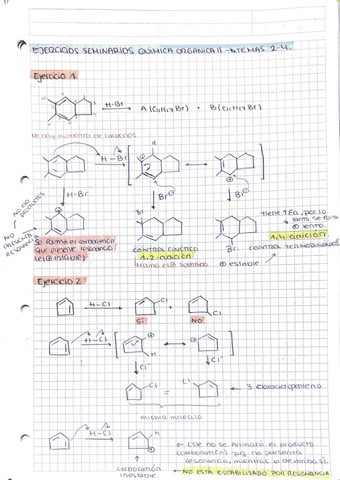 EJERCICIOS SEMINARIOS QUIMICA ORGANICA II - TEMAS 2-4.
Ejercicio 1.
H-Br
A (C11H17Br) + B (C11H17Br)
no hay aumento de carbonos
H
H-Br
H-Br
Br⊖
Br⊖
NO DA
PRODUCTOS
NO
PRESENTA
RESONANCIA
Br
Br
Si forma el carbocatión
que presente resonancia
(el ⊕ estable)
CONTROL CINÉTICO
1,2-adición
tiene ↑Ea, por lo
tanto se forma
⊕ lento.
1,4-adición.
CONTROL TERMODINÁMICO
⊕ estable
Ejercicio 2
H-Cl
Cl
+
Cl
SI
NO
H-Cl
H
Cl⁻
Cl⁻
Cl
=
Cl
3-clorociclopenteno
misma molécula
H-Cl
H
carbocatión
inestable.
Este no se formará el producto
(carbocatión) pq no presenta
resonancia, mientras de arriba sí.
NO ESTÁ ESTABILIZADO POR RESONANCIA.